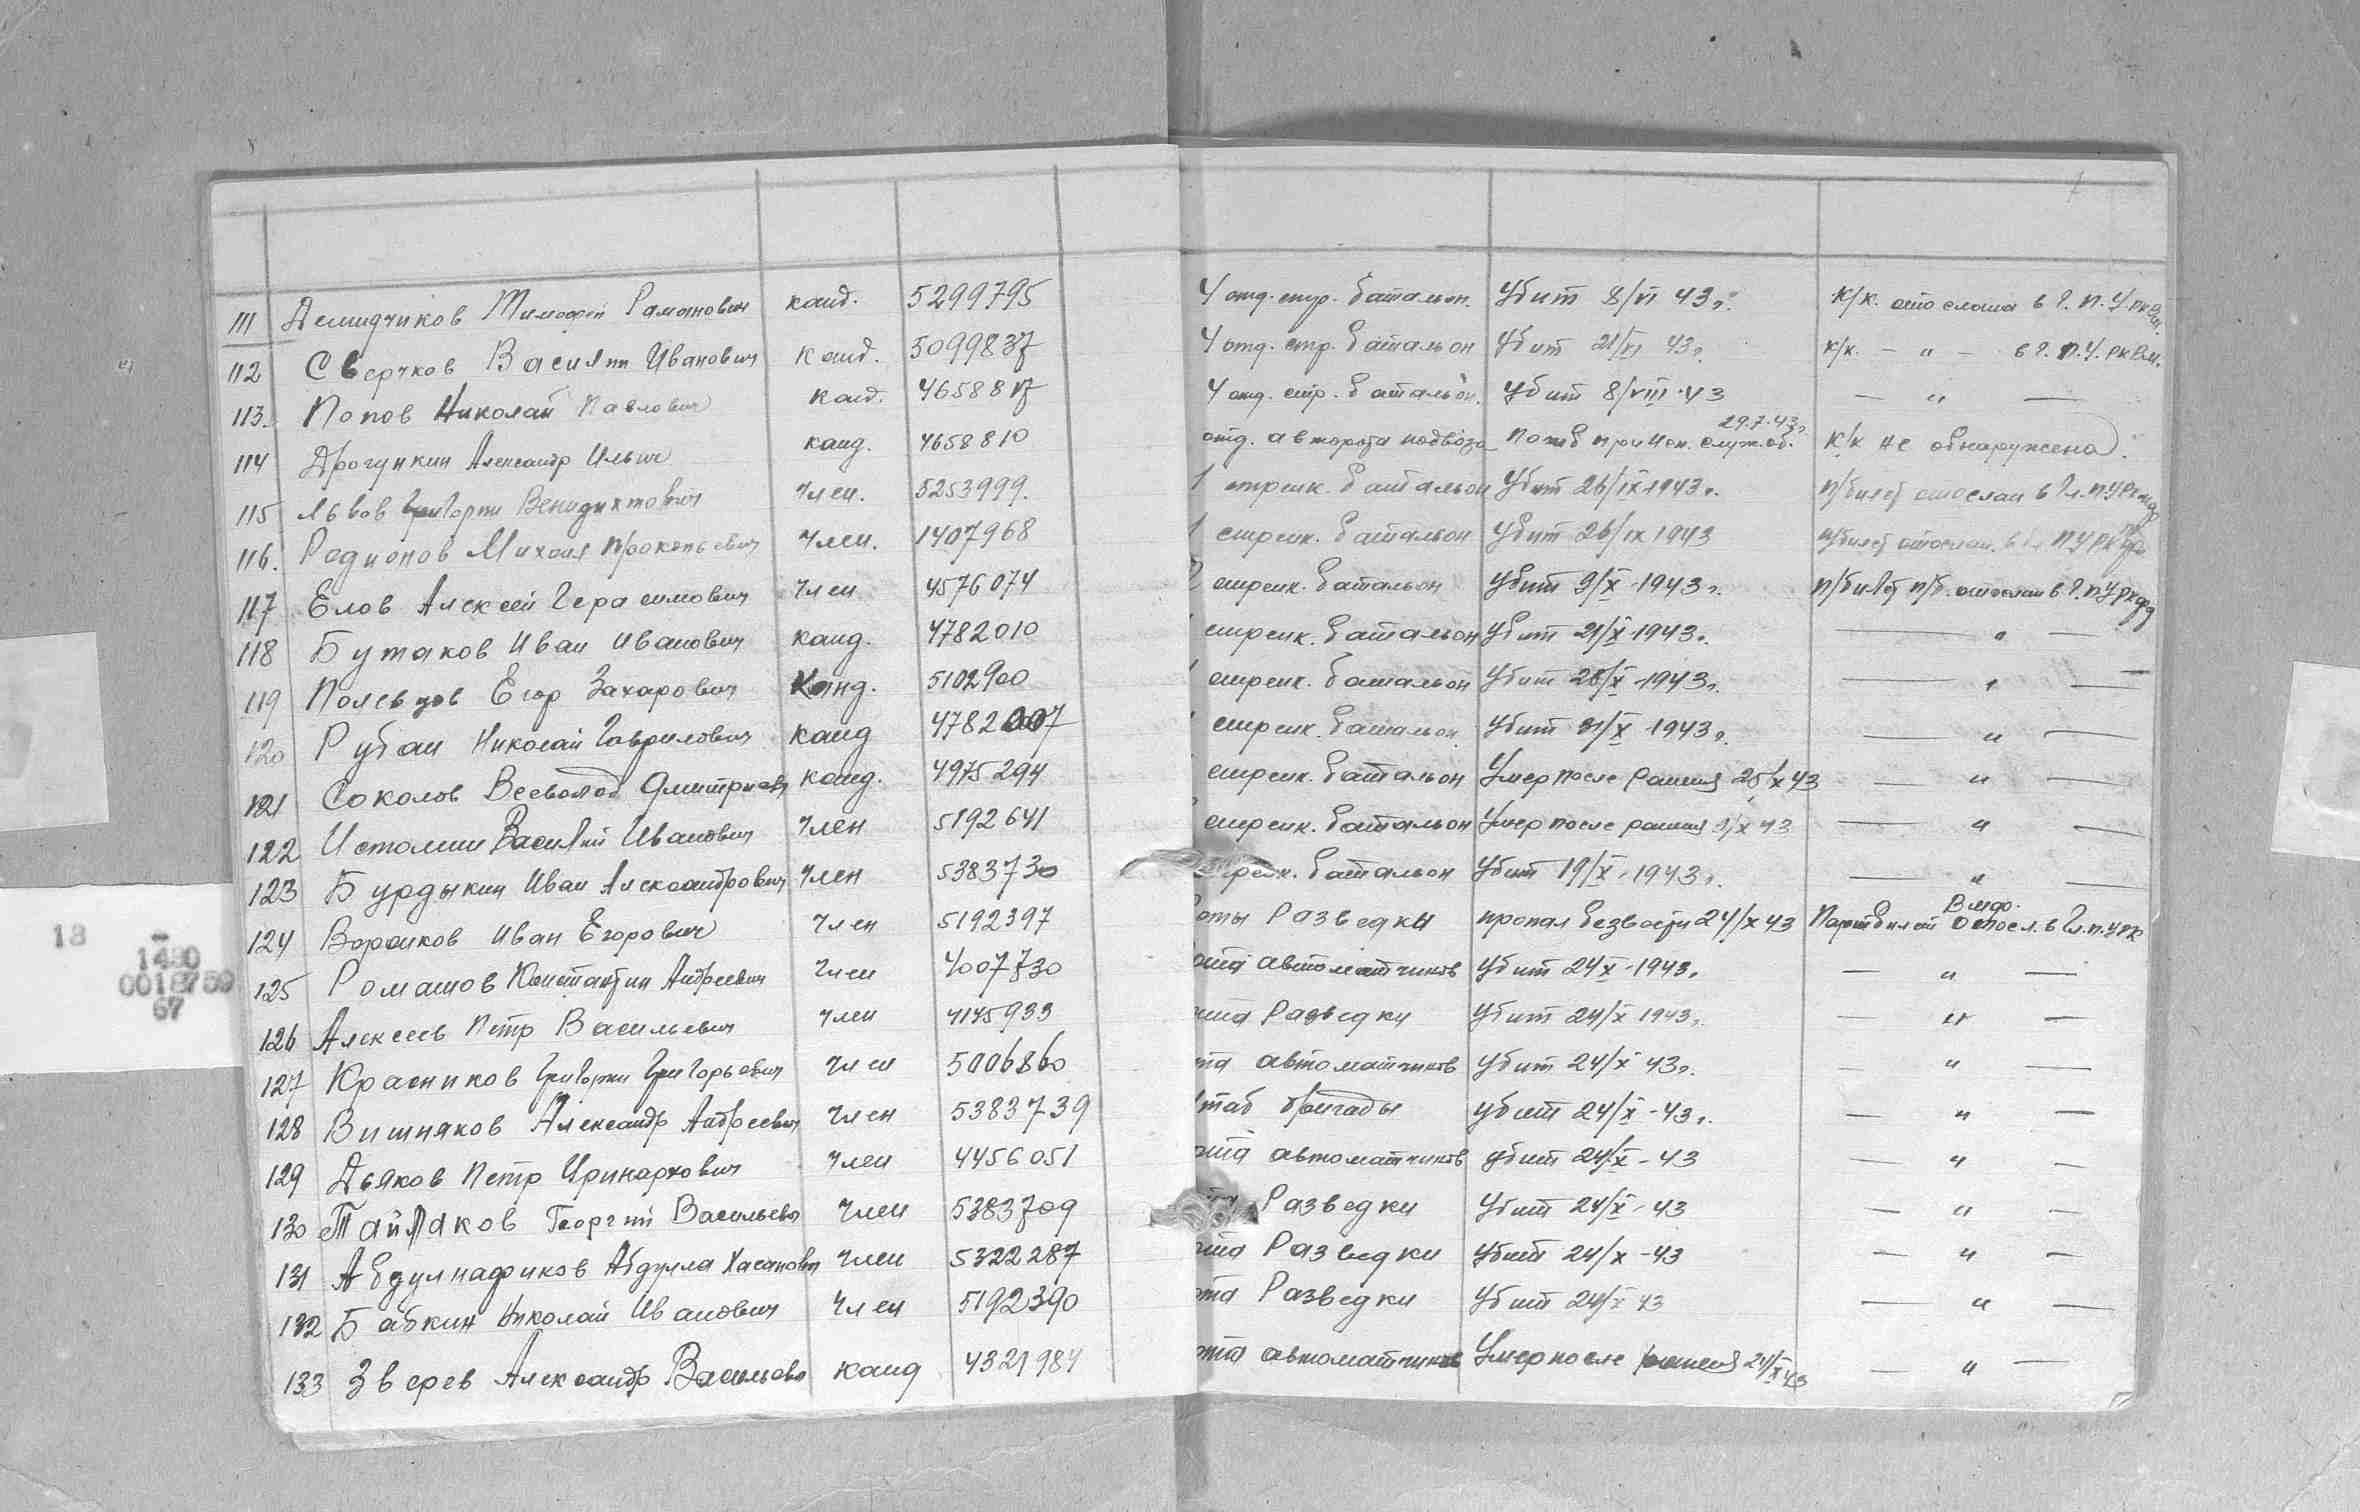 111 Демидчиков Тимофей Раманович канд. 5299795 4 отд. стр. батальон. Убит 8/VI 43г. к/к. отослана в Г.П.У.РККА.
112 Сверчков Василии Иванович канд. 5099837 4 отд. стр. батальон Убит 21/VI 43г. к/к. — " — в Г.П.У.РККА.
113. Попов Николай Павлович канд. 4658817 4 отд. стр. батальон. Убит 8/VIII 43 — " —
29.7.43г.
114 Дрогункин Александр Ильич канд. 4658810 отд. авторота подвоза погиб при исп. служ. об. к/к не обнаружена.
115 Львов Григории Венидиктович член. 5253999. 1 стрелк. батальон Убит 26/IX 1943г. п/билет отослан в Гл.ПУРККА
116. Родионов Михаил Прокопьевич член. 1407968 1 стрелк. батальон Убит 26/IX 1943 п/билет отослан. в Гл ПУРККА
117 Елов Алексей Герасимович член 4576074 2 стрелк. батальон Убит 9/X-1943г. п/билет п/б. отослан в Г.ПУРККА
118 Бутаков Иван Иванович канд. 4782010 стрелк. батальон Убит 21/X-1943г. — " —
119 Полевцов Егор Захарович канд. 5102900 стрелк. батальон Убит 28/X-1943г. — " —
120 Рубан Николай Гаврилович канд 4782007 стрелк. батальон Убит 21/X-1943г. — " —
121 Соколов Всеволод Дмитриев канд. 4975294 стрелк. батальон Умер после ранения 25/X 43 — " —
122 Истомин Василий Иванович член 5192641 стрелк. батальон Умер после ранения 9/X 43 — " —
123 Бурдыкин Иван Александрович член 5383730 стрелк. батальон Убит 19/X-1943г. — " —
124 Воронков Иван Егорович член 5192397 роты Разведки пропал безвести 24/X 43 Партбилет отосл. в Гл.п.урк
125 Ромашов Константин Андреевич член 4007730 рота автоматчиков Убит 24 X-1943г. — " —
126 Алексеев Петр Васильевич член 4145933 рота Разведки Убит 24/X 1943г. — " —
127 Красников Григории Григорьевич член 5006860 ота автоматчиков убит 24/X 43г. — " —
128 Вишняков Александр Андреевич член 5383739 штаб бригады убит 24/X-43г. — " —
129 Дьяков Петр Иринархович член 4456051 рота автоматчиков убит 24/X-43 — " —
130 Таймаков Георгий Васильевич член 5383709 Разведки Убит 24/X-43 — " —
131 Абдулнафиков Абдулла Хасанович член 5322287 рота Разведки Убит 24/X-43 — " —
132 Бабкин Николай Иванович член 5192390 ота Разведки Убит 24/X 43 — " —
133 Зверев Александр Васильевич канд 4321984 ота автоматчиков Умер после ранения 24/X 43 — " —
13
1430
0018759
67